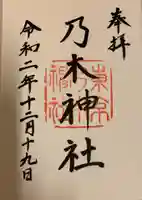 奉拝
乃木神社
令和二年十二月十九日